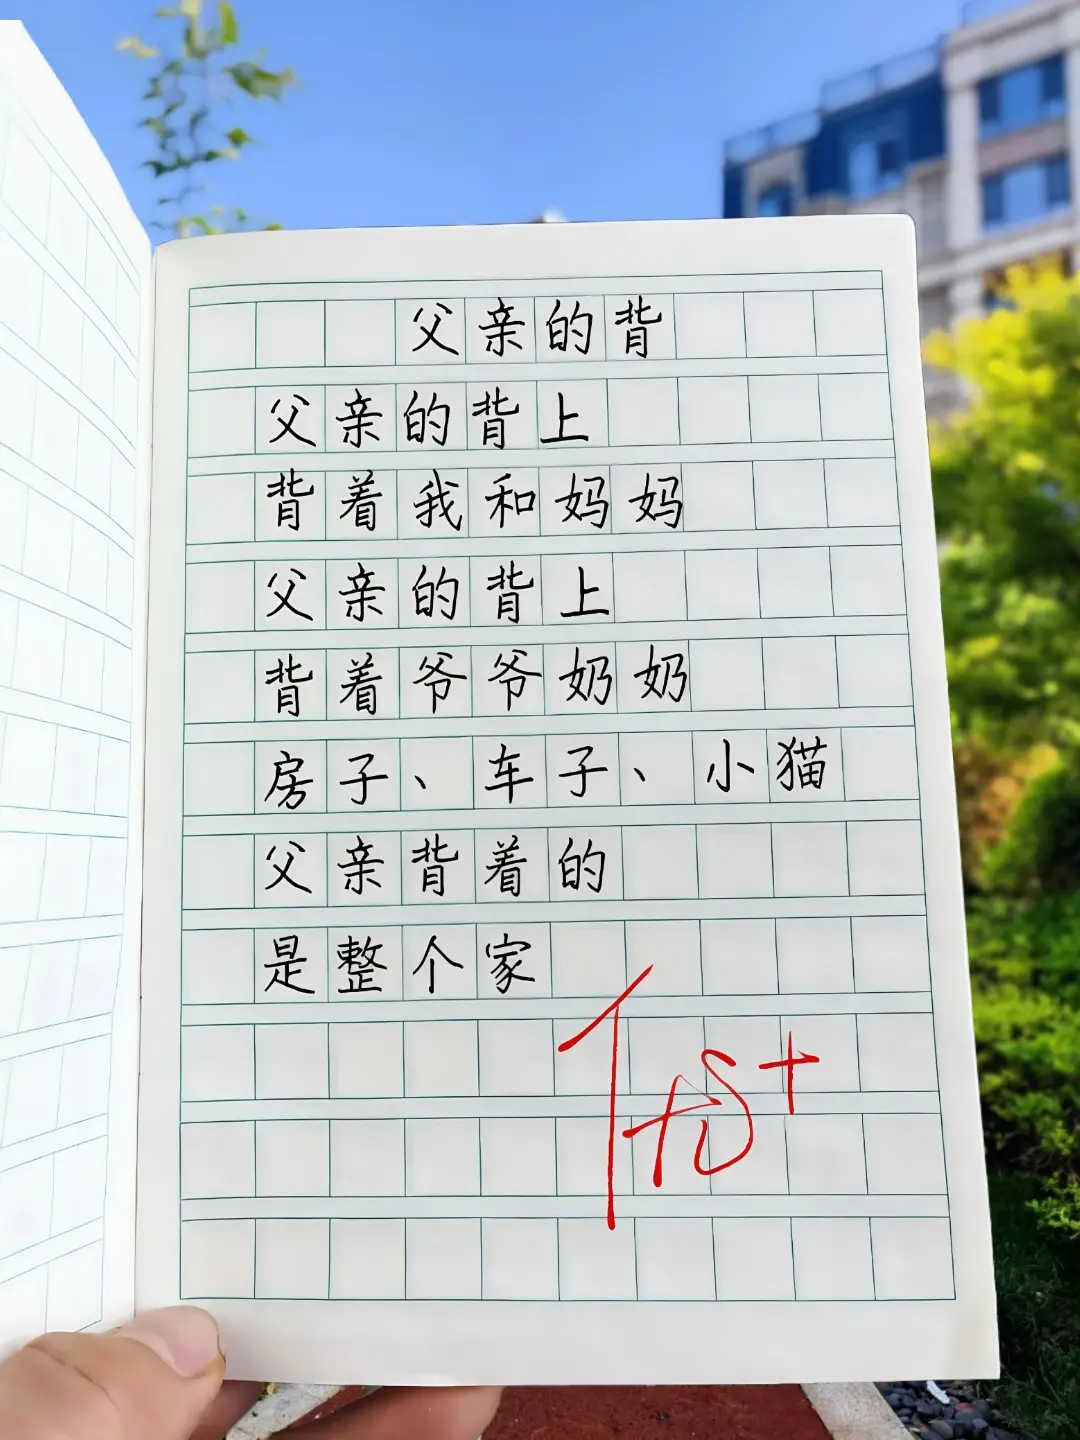 父亲的背
父亲的背上
背着我和妈妈
父亲的背上
背着爷爷奶奶
房子、车子、小猫
父亲背着的
是整个家
优+